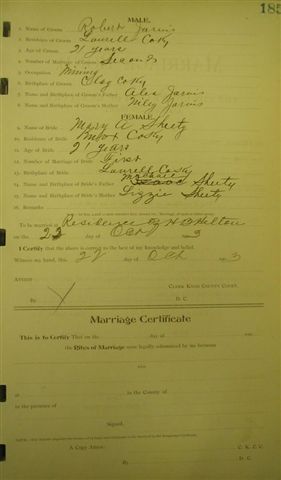 185
MALE.
1. Name of Groom Robert Jarvis
2. Residence of Groom Laurell Co Ky
3. Age of Groom 21 years
4. Number of Marriage of Groom Second
5. Occupation Mining
6. Birthplace of Groom Clay Co Ky
7. Name and Birthplace of Groom's Father Jarvis
8. Name and Birthplace of Groom's Mother Jarvis
FEMALE.
9. Name of Bride Mary A Sheety
10. Residence of Bride Knox Co Ky
11. Age of Bride 21 years
12. Number of Marriage of Bride First
13. Birthplace of Bride Laurell Co Ky
14. Name and Birthplace of Bride's Father Sheety
15. Name and Birthplace of Bride's Mother Lizzie Sheety
16. Remarks
To be married at Residence of Helton
on the 22 day of Oct 3
I Certify that the above is correct to the best of my knowledge and belief.
Witness my hand, this 22 day of Oct 3
Attest:
Clerk Knox County Court.
By D. C.
Marriage Certificate
This is to Certify That on the day of
the Rites of Marriage were legally solemnized by me between
and
at in the County of
in the presence of
Signed,
A Copy Attest: C. K. C. C.
By D. C.